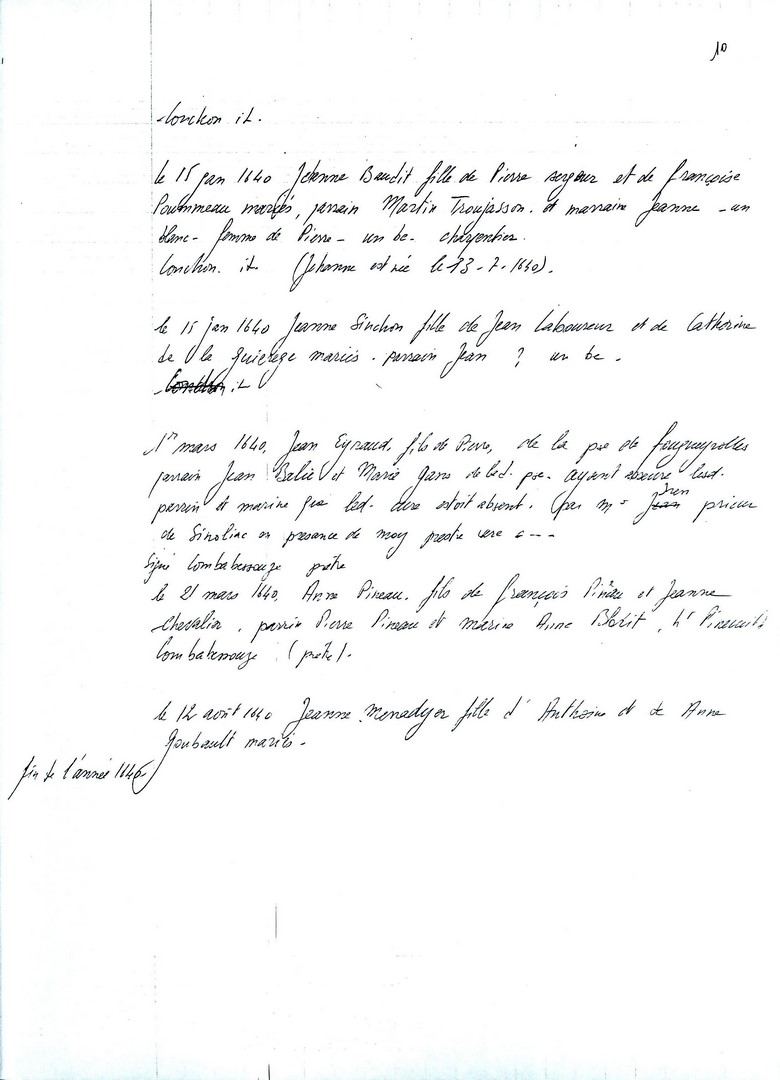 10
Conchon it.
le 15 jan 1640 Jehanne Baudit fille de Pierre sergeur et de françoise
Poummeau mariés, parrain Martin Troujasson. et marraine Jeanne - un
blanc - femme de Pierre - un bc - charpentier.
Conchon. it. (Jehanne est née le 13-7-1640).
le 15 jan 1640 Jeanne Sinchon fille de Jean Laboureur et de Catherine
de la mariés. parrain Jean ? un bc.
it
1er mars 1640, Jean Eyraud, fils de Pierre, de la pse de fougueyrolles
parrain Jean Balie et Marie gans de lad. pse. ayant assure lesd.
parrin et marine que led. cure estoit absent. (par m= Jean prieur
de en presance de moy prestre cure - - -
Signé Combabessouze prêtre
le 21 mars 1640, Anne Pineau. fils de françois Pineau et Jeanne
Chevalier, parrin Pierre Pineau et marine Anne
Combabessouze (prêtre).
le 12 août 1640 Jeanne Menadyer fille d'Anthoine et de Anne
Joubault mariés.
fin de l'année 1640